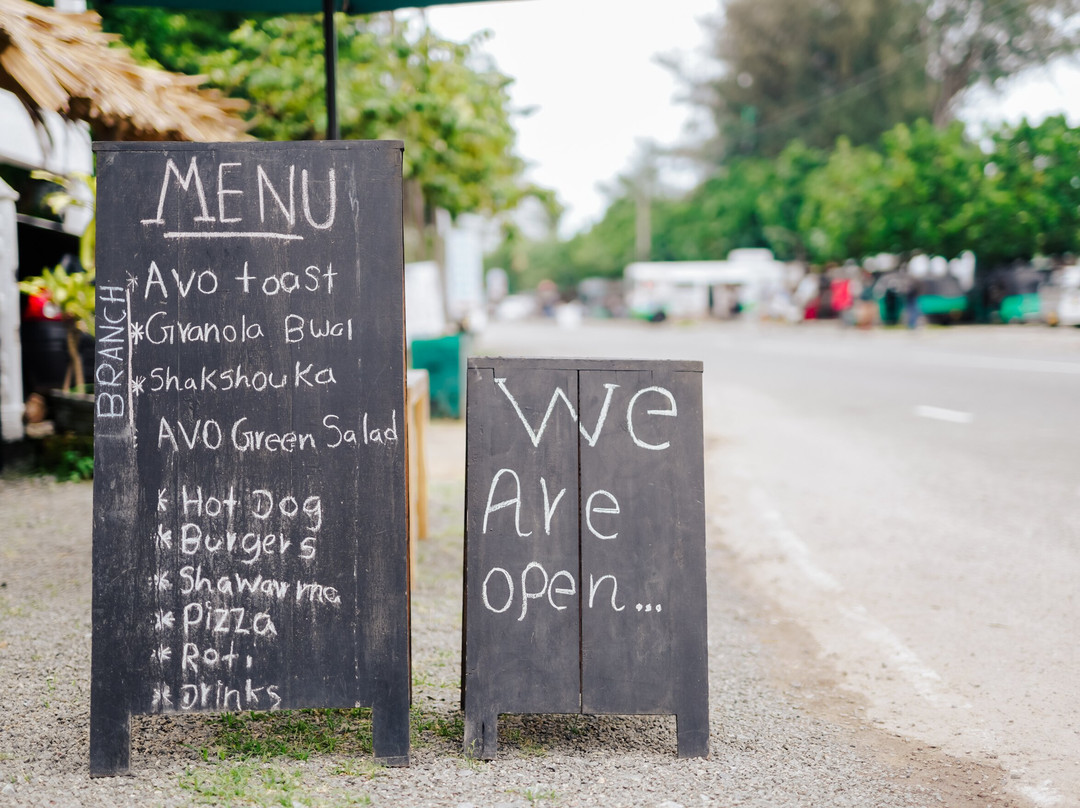 MENU
BRANCH
* Avo toast
* Granola Bwal
* Shakshouka
AVO Green Salad
* Hot Dog
* Burgers
* Shawarma
* Pizza
* Roti
* Drinks
We
Are
open...